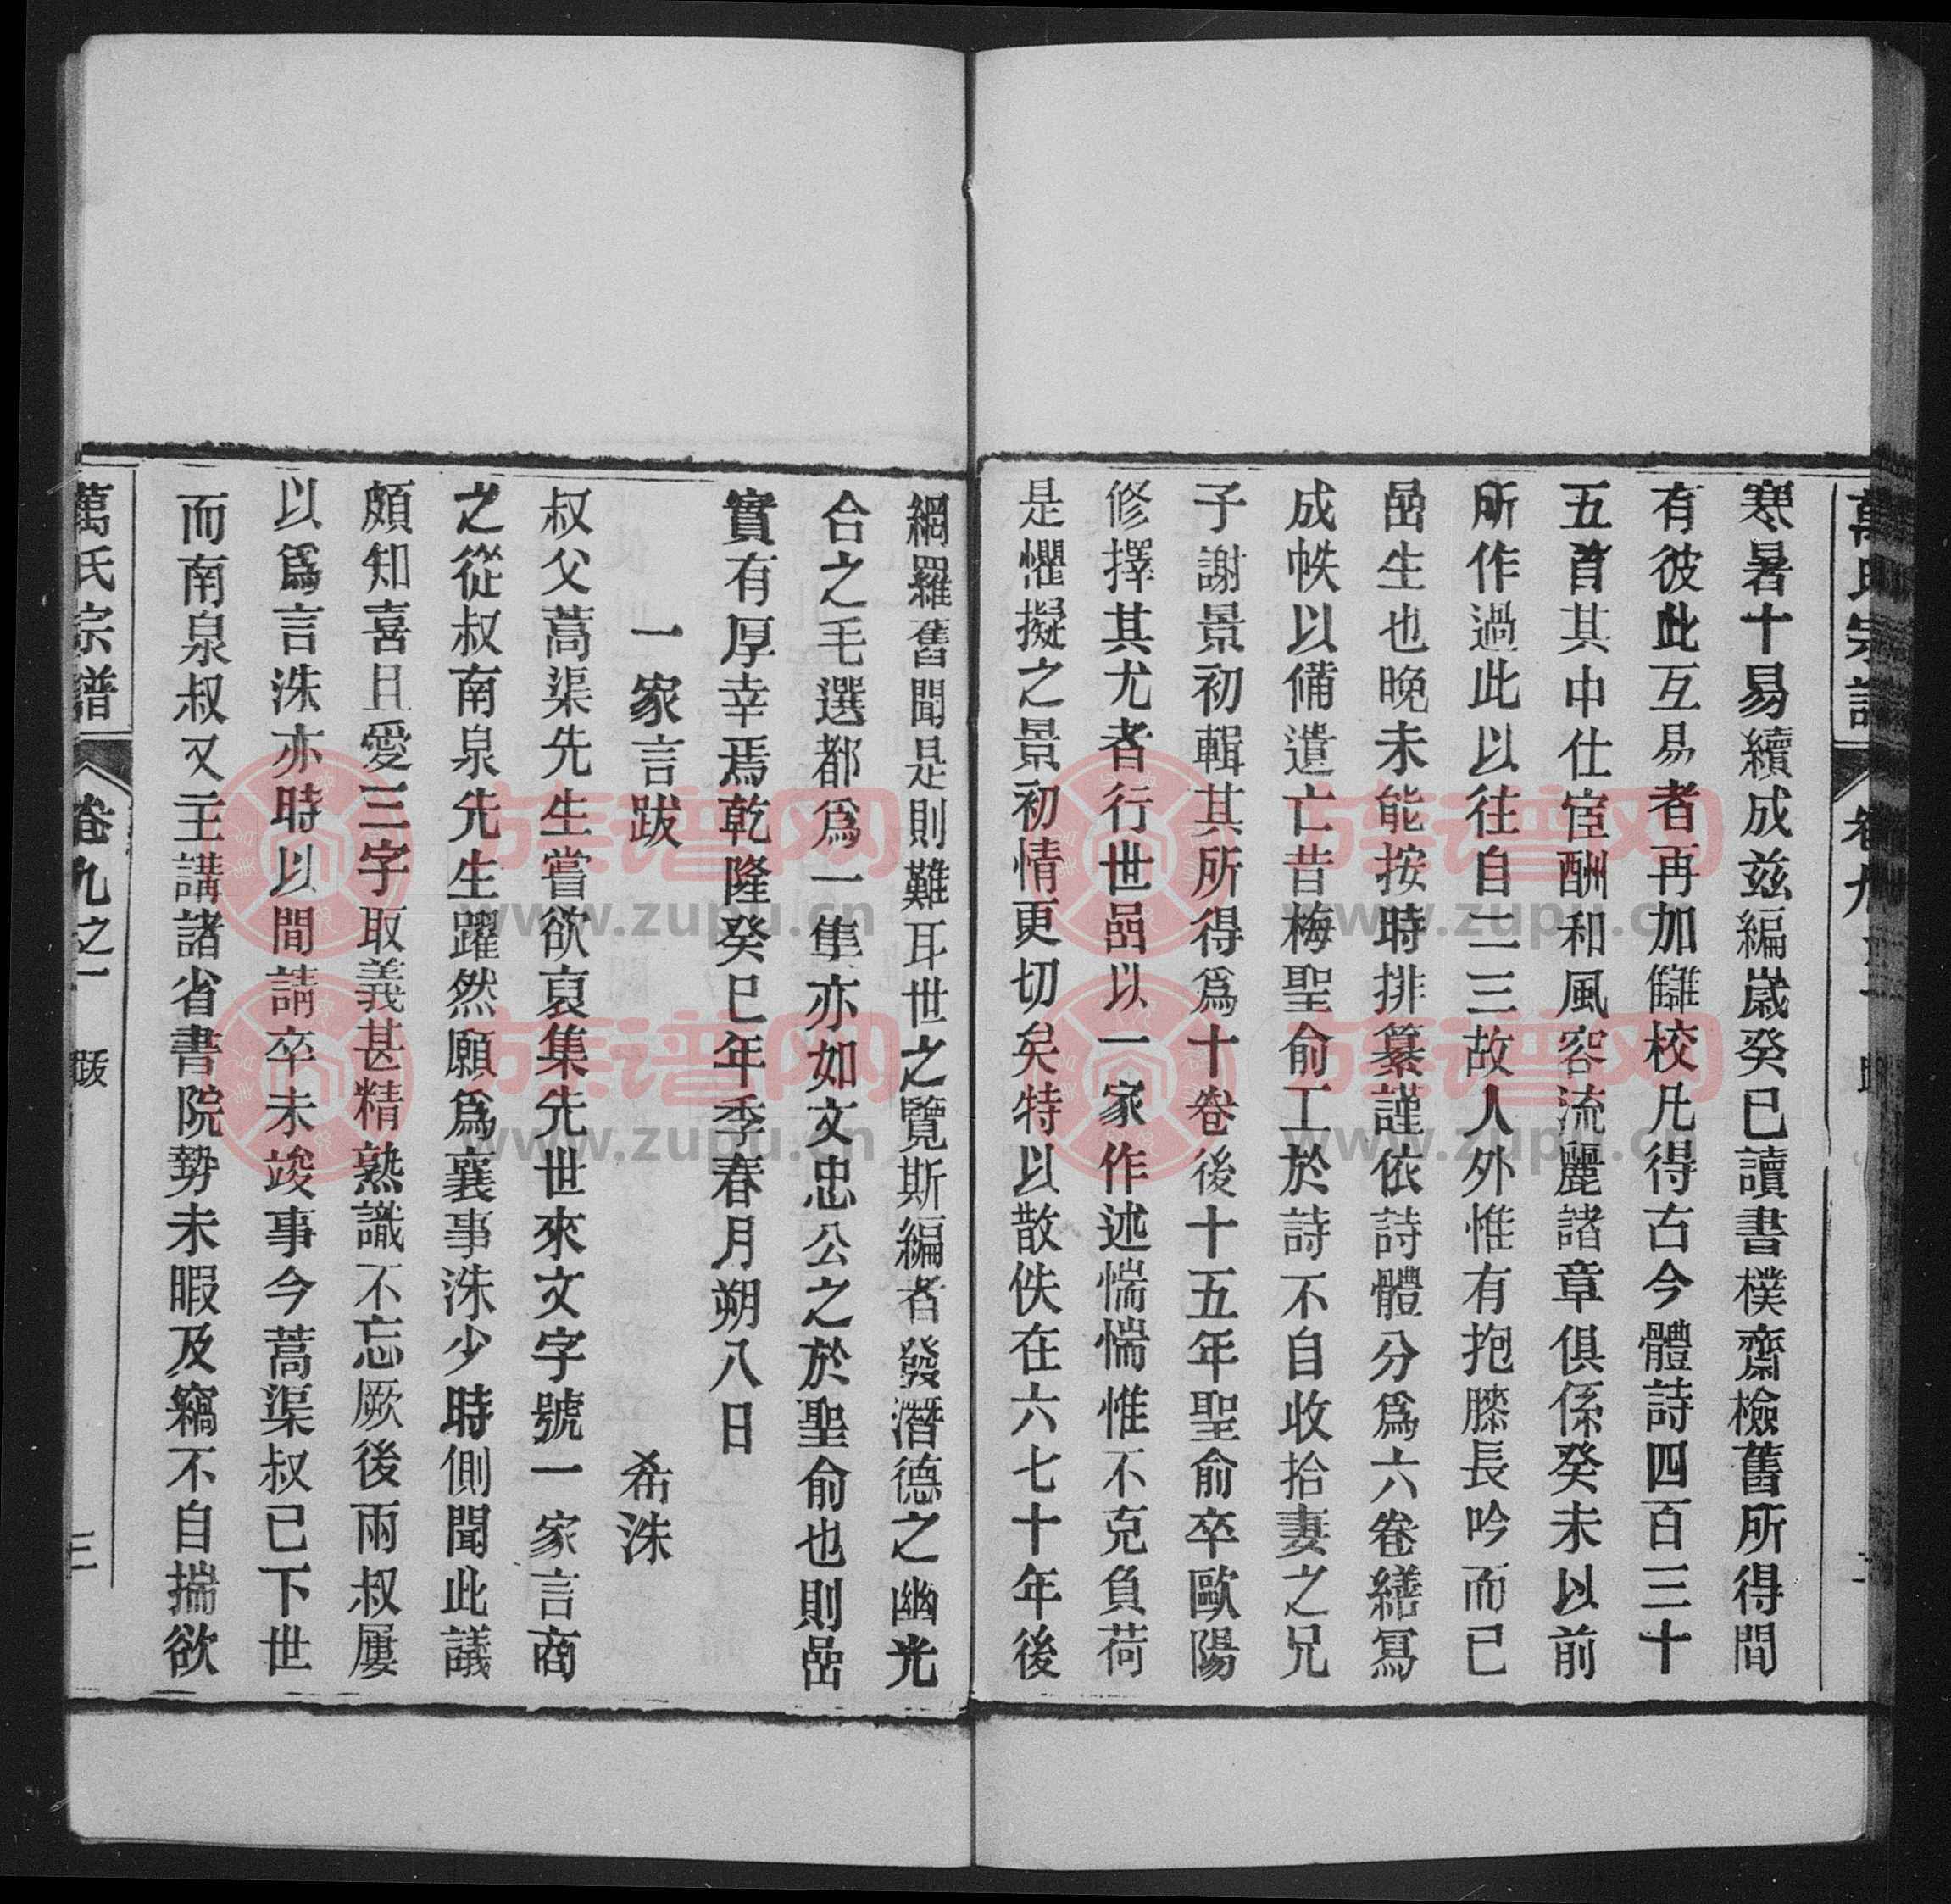 萬氏宗譜 卷九之一 跋
寒暑十易續成兹編歲癸巳讀書樸齋檢舊所得間
有彼此互易者再加讎校凡得古今體詩四百三十
五首其中仕宦酬和風容流麗諸章俱係癸未以前
所作過此以往自二三故人外惟有抱膝長吟而已
嵒生也晚未能按時排纂謹依詩體分爲六卷繕寫
成帙以備遺亡昔梅聖俞工於詩不自收拾妻之兄
子謝景初輯其所得爲十卷後十五年聖俞卒歐陽
修擇其尤者行世嵒以一家作述惴惴惟不克負荷
是懼擬之景初情更切矣特以散佚在六七十年後
網羅舊聞是則難耳世之覽斯編者發潛德之幽光
合之毛選都爲一隼亦如文忠公之於聖俞也則嵒
實有厚幸焉乾隆癸巳年季春月朔八日
一家言跋 希洙
叔父蒿渠先生嘗欲裒集先世來文字號一家言商
之從叔南泉先生躍然願爲襄事洙少時側聞此議
頗知喜且愛三字取義甚精熟識不忘厥後兩叔屢
以爲言洙亦時以間請卒未竣事今蒿渠叔已下世
而南泉叔又主講諸省書院勢未暇及竊不自揣欲
萬氏宗譜 卷九之一 跋 三
族谱网
www.zupu.cn
族谱网
www.zupu.cn
族谱网
www.zupu.cn
族谱网
www.zupu.cn